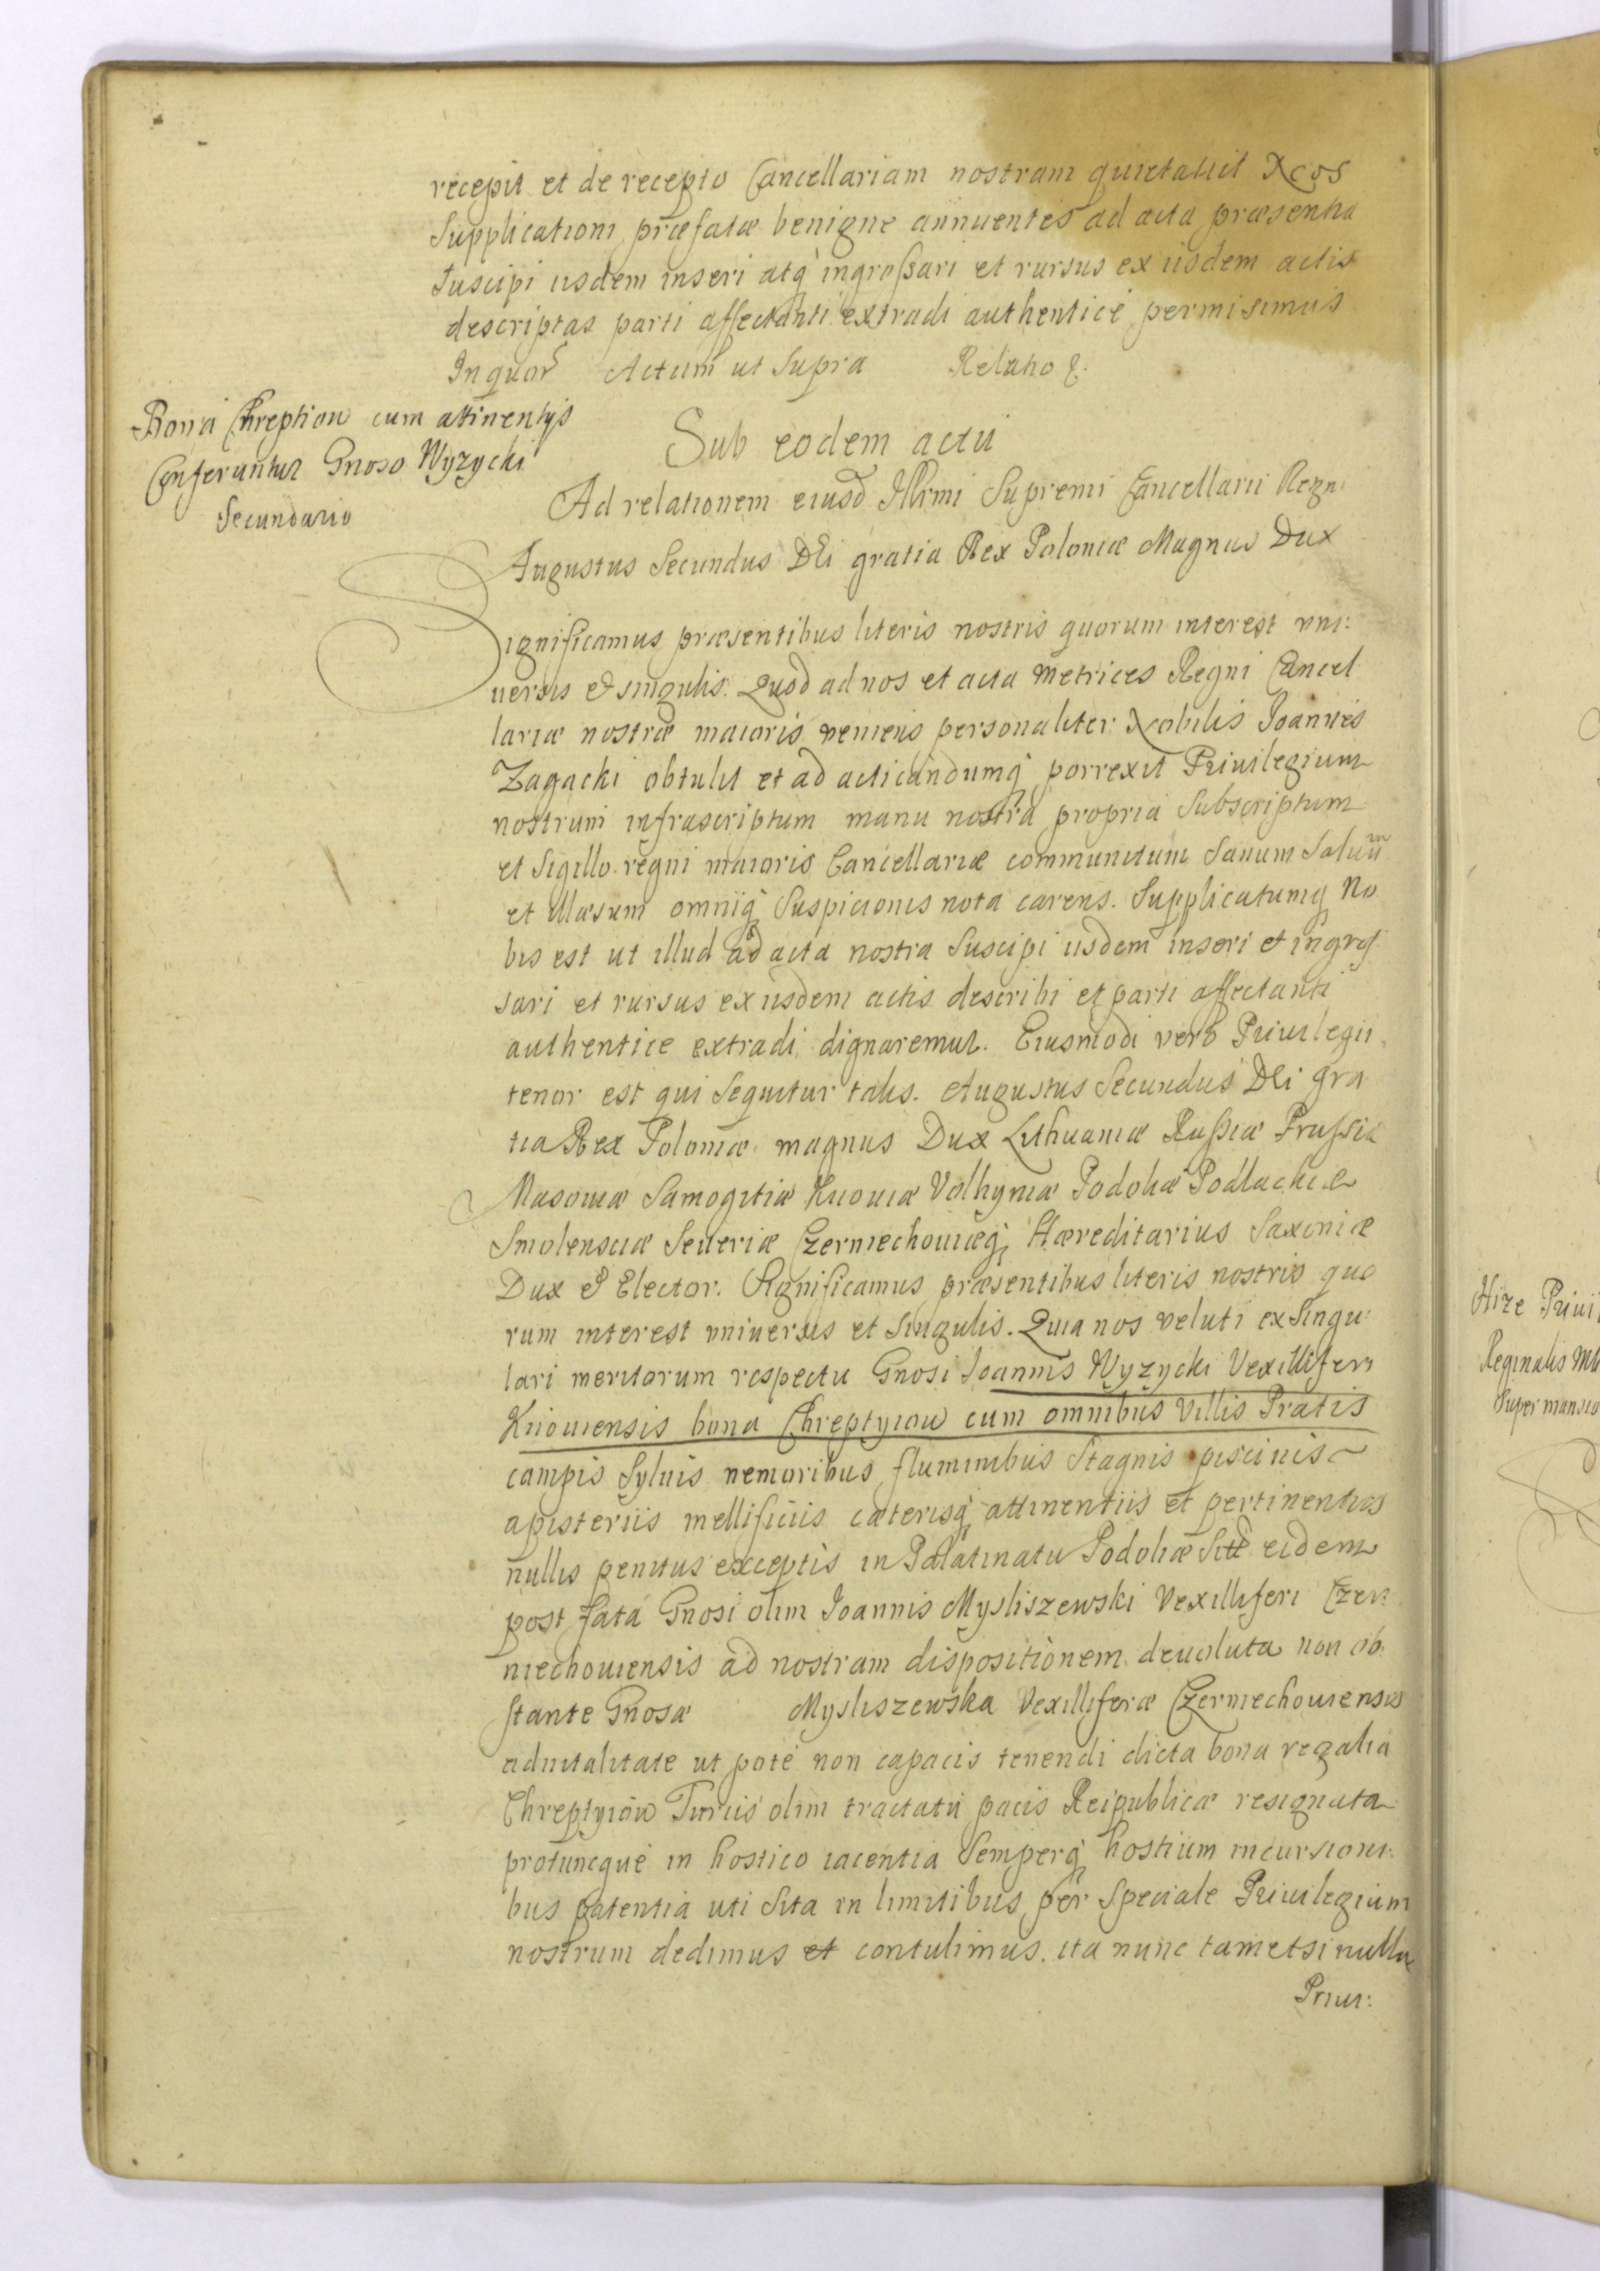 recepit et de recepto Cancellariam nostram quietauit Nos
Supplicationi præfatæ benigne annuentes ad acta præsentia
Suscipi iisdem inseri atq ingrossari et rursus ex iisdem actis
descriptas parti affectanti extradi authentice permisimus
In quor Actum ut Supra Relatio
Bona Chreptiow cum attinentijs
Conferuntur Gnoso Wyzycki
Secundario
Sub eodem actu
Ad relationem eiusd Illrmi Supremi Cancellarii Regni
Augustus Secundus DEi gratia Rex Poloniæ Magnus Dux
Significamus præsentibus literis nostris quorum interest vni:
uersis et singulis. Quod ad nos et acta Metrices Regni Cancel
lariæ nostræ maioris veniens personaliter Nobilis Joannes
Zagacki obtulit et ad acticandumq porrexit Priuilegium
nostrum infrascriptum manu nostra propria Subscriptum
et Sigillo regni maioris Cancellariæ communitum Sanum Saluum
et illæsum omniiq Suspicionis nota carens. Supplicatumq No
bis est ut illud ad acta nostra Suscipi iisdem inseri et ingros
sari et rursus ex iisdem actis describi et parti affectanti
authentice extradi dignaremur. Eiusmodi vero Priuilegii
tenor est qui Sequitur talis. Augustus Secundus DEi Gra
tia Rex Poloniæ magnus Dux Lithuaniæ Russiæ Prussiæ
Masouiæ Samogitiæ Kiiouiæ Volhyniæ Podoliæ Podlachiæ
Smolensciæ Seueriæ Czerniechouiæq Hæreditarius Saxoniæ
Dux et Elector. Significamus præsentibus literis nostris quo
rum interest vniuersis et Singulis. Quia nos veluti ex Singu
lari meritorum respectu Gnosi Joannis Wyzycki Vexilliferi
Kiiouiensis bona Chreptyiow cum omnibus Villis Pratis
campis Syluis nemoribus fluminibus Stagnis piscinis
apisteriis mellificiis cæterisq attinentiis et pertinentiis
nullis penitus exceptis in Palatinatu Podoliæ Sitt eidem
post fata Gnosi olim Joannis Mysliszewski Vexilliferi Czer
niechouiensis ad nostram dispositionem deuoluta non ob
stante Gnosæ Mysliszewska Vexilliferæ Czerniechouiensis
aduitalitate ut pote non capacis tenendi dicta bona regalia
Chreptyiow Turcis olim tractatu pacis Reipublicæ resignata
protuncque in hostico iacentia Semperq hostium incursioni:
bus patentia uti Sita in limitibus per Speciale Priuilegium
nostrum dedimus et contulimus. ita nunc tametsi nulla
Priui:
Priui
Reginalis
Super